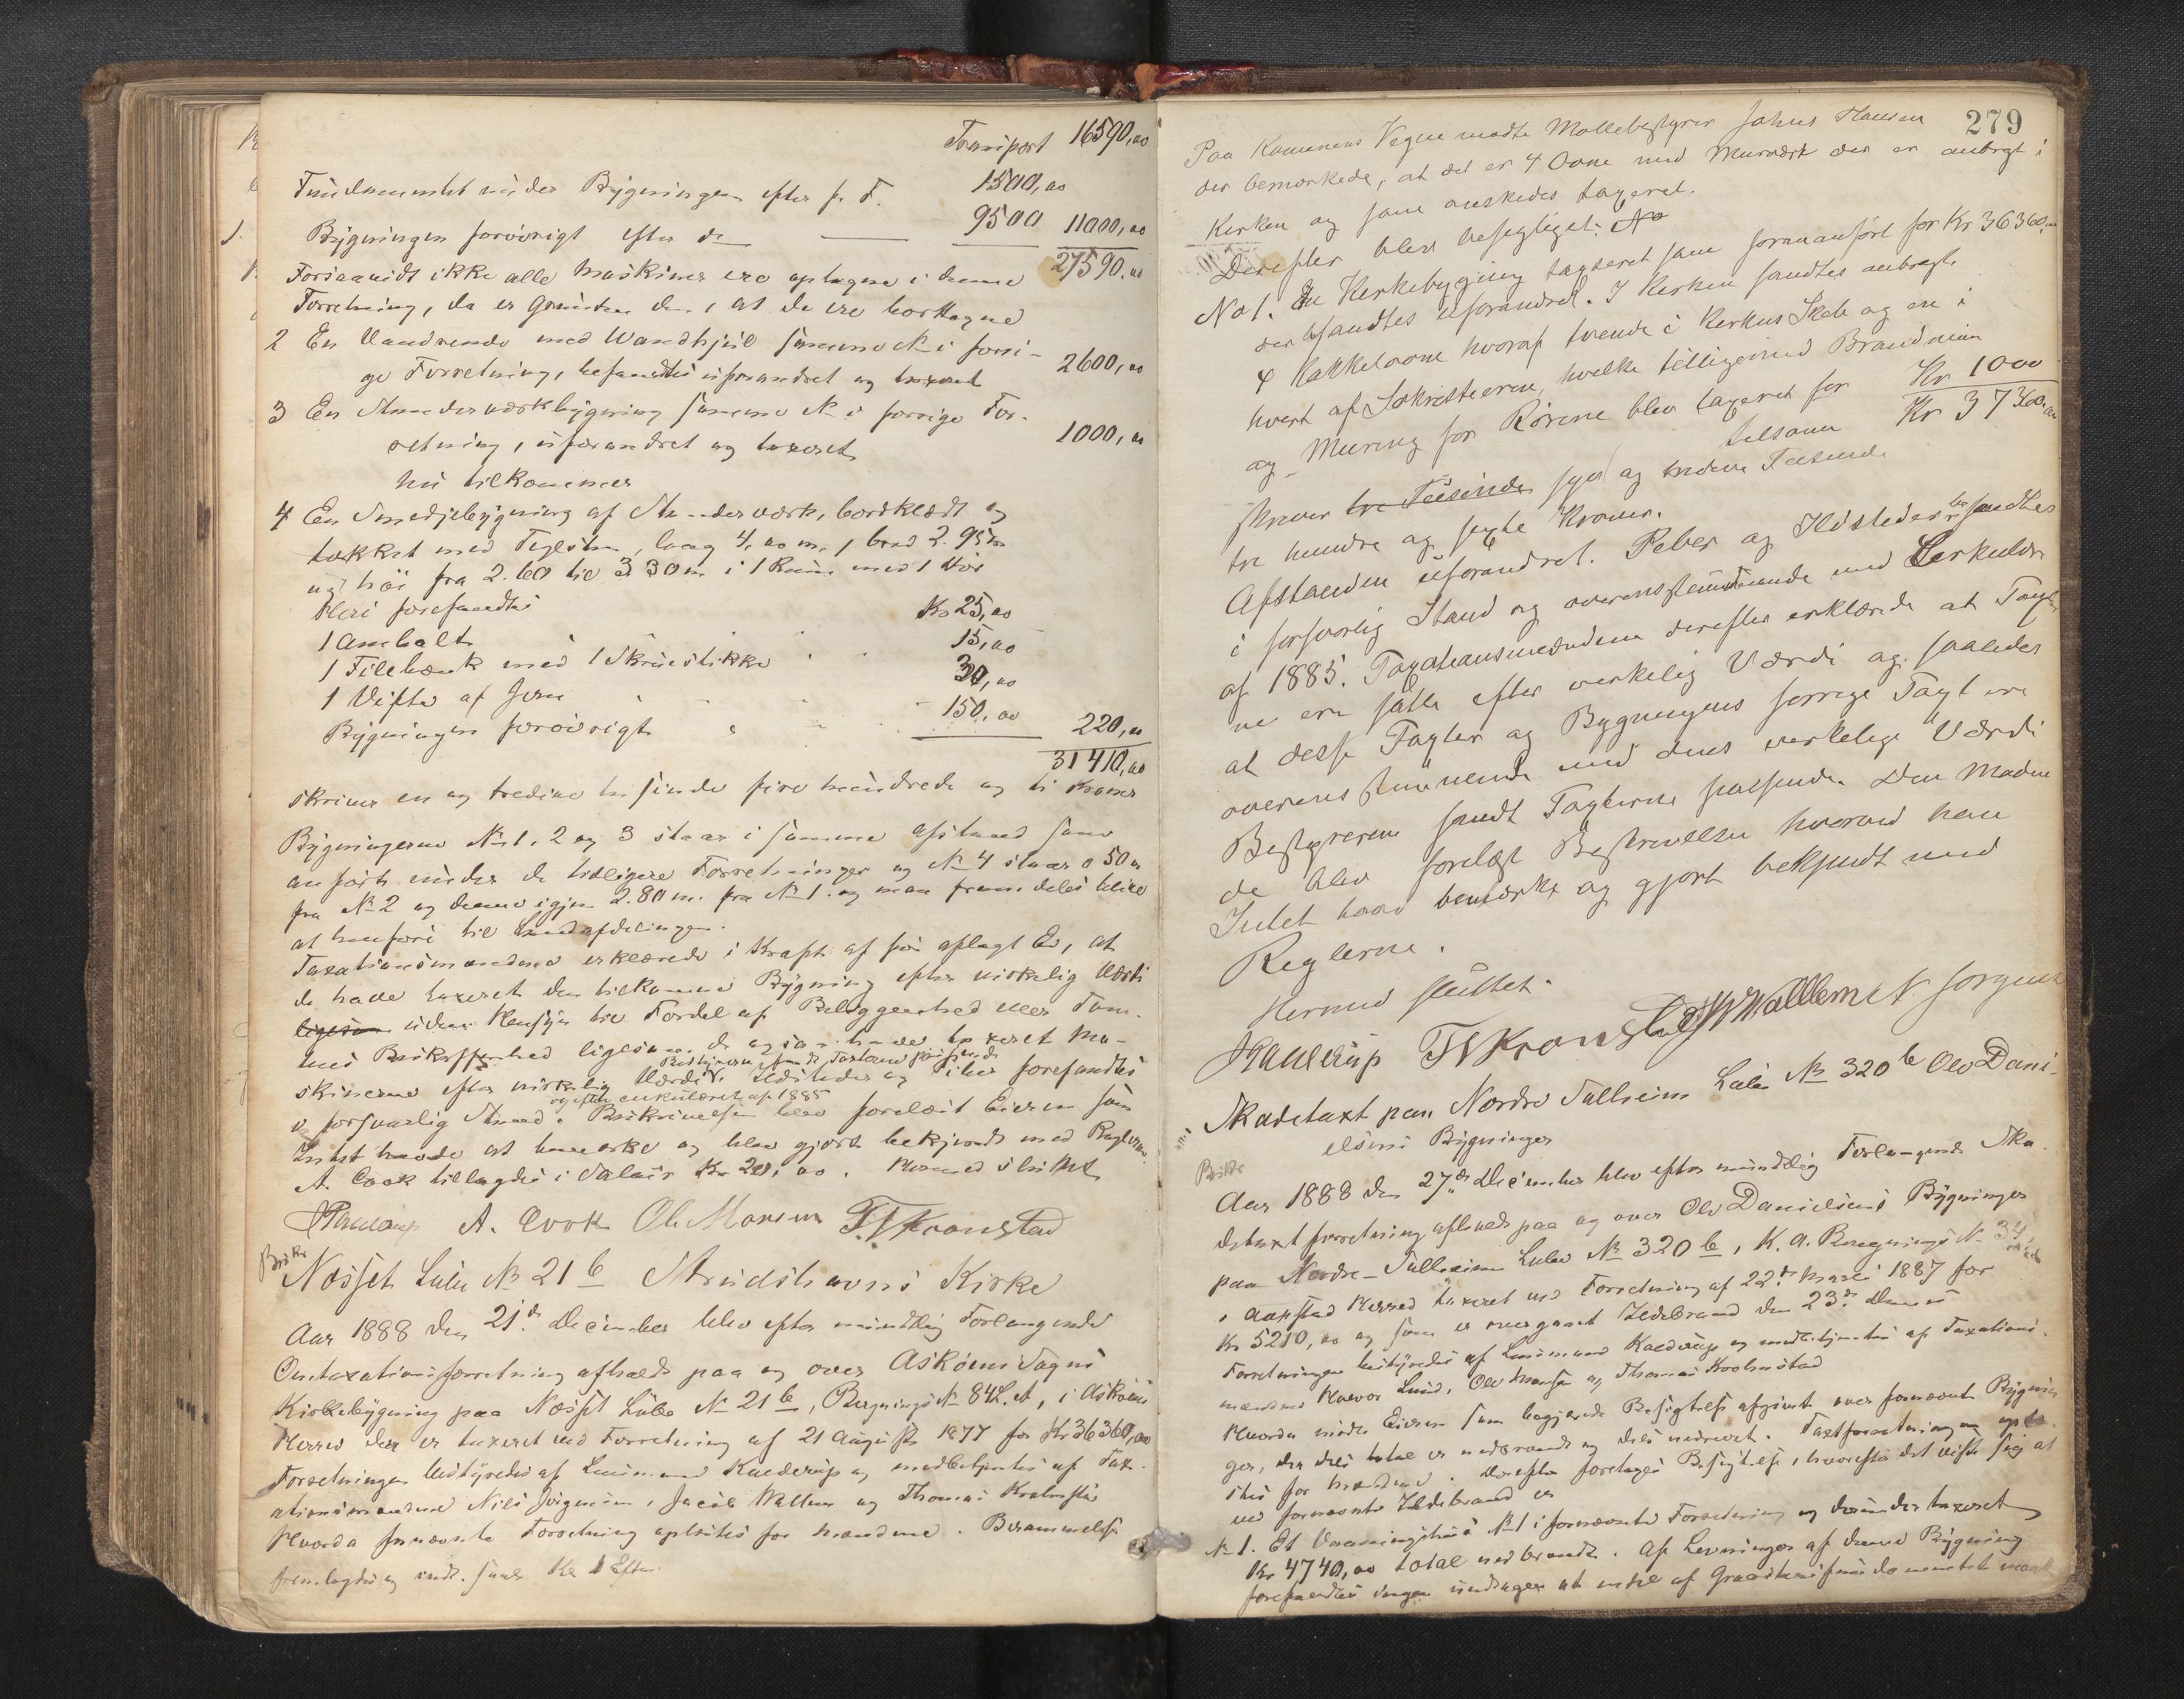 Transport 16590,00
Fundamentet under Bygningen efter pr F. 1500,00
Bygningen forøvrigt efter do 9500 11000,00
27590,00
Forsaavidt ikke alle Maskiner ere optagne i denne
Forretning, da er Grunden den, at de ere borttagne
2 En Vandrende med Vandhjul samme No i forri-
ge Forretning, befandtes uforandret og taxeret 2600,00
3 En Staverværkbygning samme No i forrige For-
retning, uforandret og taxeret 1000,00
Nu tilkommer
4 En Smedjebygning af Stenderværk, bordklædt og
tækket med Teglsten, lang 4,00 m, bred 2.95 m
og høi fra 2.60 til 3.30 m i 1 Rum med 1 Dør
Heri forefandtes
1 Ambolt Kr 25,00
1 Filebænk med 1 Skruestikke 15,00
1 Vifte af Jern 30,00
Bygningen forøvrigt 150,00 220,00
31410,00
skriver en og tredive tusinde fire hundrede og ti Kroner
Bygningerne No 1, 2 og 3 staar i samme Afstand som
anført under de tidligere Forretninger og No 4 staar 0.50 m
fra No 2 og denne igjen 2.80 m. fra No 1. og maa fremdeles blive
at henføre til Landafdelingen.
Taxationsmændene erklærede i Kraft af før aflagt Ed, at
de have taxeret den tilkomne Bygning efter virkelig Værdi
ligesom uden Hensyn til Fordel af Beliggenhed eller Tom-
tens Beskaffenhed ligesom de ogsaa havde taxeret Ma-
Bestyreren fandt Taxterne passende
skinerne efter virkelig Værdi. Ildsteder og Piber forefandtes
og efter Cirkulæret af 1885
i forsvarlig Stand. Beskrivelsen blev forelæst Eieren som
Intet havde at bemærke og blev gjort bekjendt med Reglerne.
A. Cook tillagdes i Salair Kr 20,00. Hermed sluttet
Kaalerup A. Cook Ole Monsen T. Kronstad
Næsset Løbe No 21 b Strudshavns Kirke
Aar 1888 den 21de December blev efter mundtlig Forlangende
Omtaxationsforretning afholdt paa og over Askøens Sogns
Kirkebygning paa Næsset Løbe No 21 b, Bygnings No 84 L. A, i Askøens
Herred der er taxeret ved Forretning af 21 August 1877 for Kr 36360,00
Forretningen bestyredes af Lensmand Kaalerup og medbetjentes af Tax-
ationsmændene Nils Jørgensen, Jacob Wallem og Thomas Kronstad
Hvorda fornævnte Forretning oplæstes for Mændene. Berammelse
fremlagdes
279
Paa Kommunens Vegne mødte Møllebestyrer Johns Hansen
der bemærkede, at det er 4 Ovne med Murværk der er anbragt i
Kirken og som ønskedes taxeret.
Derefter blev besigtiget:
No 1. En Kirkebygning taxeret som foranført for Kr 36360,00
der befandtes uforandret. I Kirken fandtes anbragt
4 Kakkelovne hvoraf tvende i Kirkens Skib og en i
hvert af Sakristierne, hvilke tilligemed Brandmur
og Muring for Rørene blev taxeret for Kr 1000
tilsammen Kr 37360,00
skriver tre Tusinde syv og tredive Tusinde
tre hundre og sexti Kroner.
Afstanden uforandret. Piber og Ildsteder befandtes
i forsvarlig Stand og overensstemmende med Cirkulære
af 1885. Taxationsmændene derefter erklærede at Taxter-
ne ere satte efter virkelig Værdi og saaledes
at disse Taxter og Bygningens forrige Taxt ere
overensstemmende med dens virkelige Værdi
Bestyreren fandt Taxterne passende. Den Mødende
blev forelæst Beskrivelsen hvorved han
Intet havde bemærke og gjort bekjendt med
Reglerne.
Hermed sluttet.
Kaalerup T. Kronstad J. W Wallem N. Jørgensen
Skadetaxt paa Nordre Tulheim Løbe No 320 b Ole Dani-
elsens Bygninger
Aar 1888 den 27de December blev efter mundtlig Forlangende Ska-
detaxtforretning afholdt paa og over Ole Danielsens Bygninger
paa Nordre-Tulheim Løbe No 320 b, K. A. Bygnings No 34,
i Aarstad Herred taxeret ved Forretning af 22de Marts 1887 for
Kr 5210,00 og som er overgaaet Ildebrand den 23de Dennes
Forretningen bestyredes af Lensmand Kaalerup og medbetjentes af Taxations-
mændene Halvor Lund, Ole Monsen og Thomas Kronstad
Hvorda mødte Eieren som begjærede Besigtelse afgivet over fornævnte Bygnin-
ger, der dels total er nedbrændt og dels nedrevet. Taxtforretningen oplæ-
stes for Mændene. Derefter foretoges Besigtelse, hvorefter det viste sig at
ved fornævnte Ildebrand er
No 1. Et Vaaningshus No 1 i fornævnte Forretning og derunder taxeret
Kr 4740,00 total nedbrændt. Af Levninger af denne Bygning
forefandtes ingen undtagen at endel af Graastensfundamentet